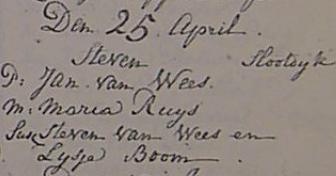 Den 25 April.
Steven Slootdyk
P: Jan van Wees.
M: Maria Ruys
Sus Steven van Wees en
Lysje Boom.